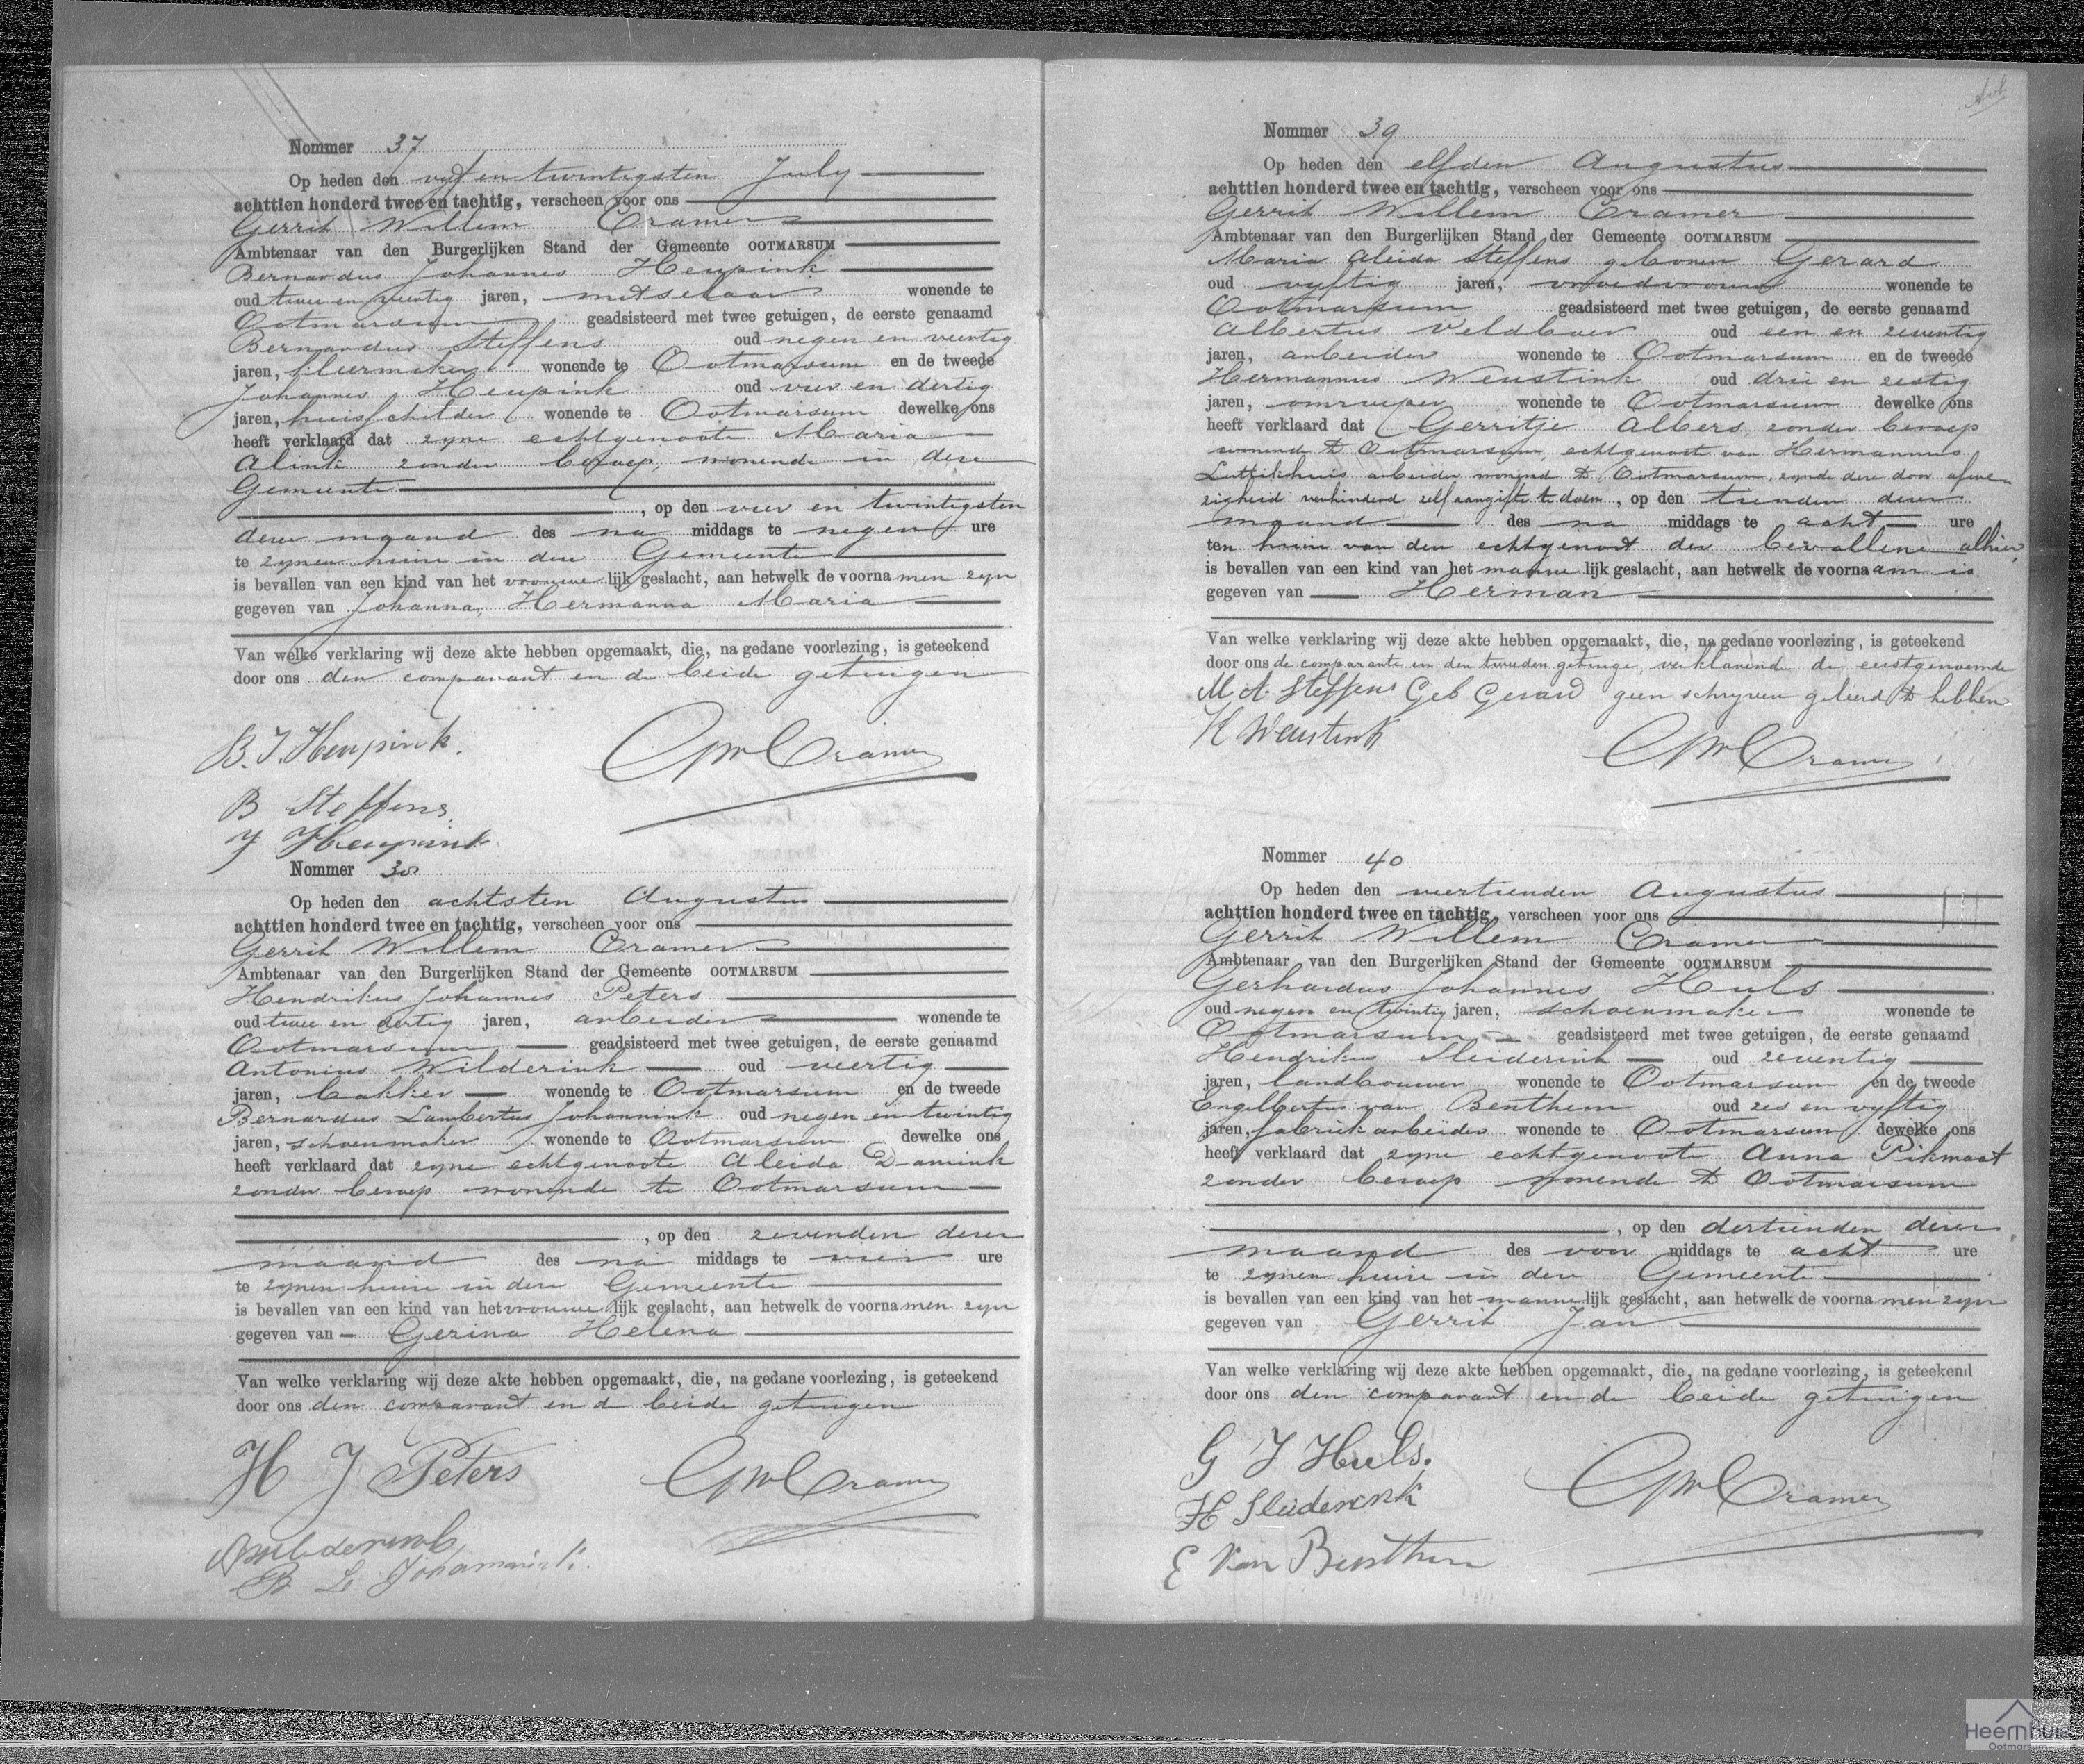 Nommer 37
Op heden den vyf en twintigsten July
achttien honderd twee en tachtig, verscheen voor ons
Gerrit Willem Cramer
Ambtenaar van den Burgerlijken Stand der Gemeente OOTMARSUM
Bernardus Johannes Heupink
oud twee en veertig jaren, metselaar wonende te
Ootmarsum geadsisteerd met twee getuigen, de eerste genaamd
Bernardus Steffens oud negen en veertig
jaren, kleermaker wonende te Ootmarsum en de tweede
Johannes Heupink oud vier en dertig
jaren, huisschilder wonende te Ootmarsum dewelke ons
heeft verklaard dat zyne echtgenoote Maria
Alink zonder beroep, wonende in deze
Gemeente
, op den vier en twintigsten
dezer maand des na middags te negen ure
te zynen huize in deze Gemeente
is bevallen van een kind van het vrouwelijk geslacht, aan hetwelk de voornamen zyn
gegeven van Johanna, Hermanna Maria
Van welke verklaring wij deze akte hebben opgemaakt, die, na gedane voorlezing, is geteekend
door ons den comparant en de beide getuigen
B. J. Heupink.
GW Cramer
B Steffens
J Heupink
Nommer 38
Op heden den achtsten Augustus
achttien honderd twee en tachtig, verscheen voor ons
Gerrit Willem Cramer
Ambtenaar van den Burgerlijken Stand der Gemeente OOTMARSUM
Hendrikus Johannes Peters
oud twee en dertig jaren, arbeider wonende te
Ootmarsum geadsisteerd met twee getuigen, de eerste genaamd
Antonius Wilderink oud veertig
jaren, bakker wonende te Ootmarsum en de tweede
Bernardus Lambertus Johannink oud negen en twintig
jaren, schoenmaker wonende te Ootmarsum dewelke ons
heeft verklaard dat zyne echtgenoote Aleida Damink
zonder beroep wonende te Ootmarsum
, op den zevenden dezer
maand des na middags te vier ure
te zynen huize in deze Gemeente
is bevallen van een kind van het vrouwelijk geslacht, aan hetwelk de voornamen zyn
gegeven van Gezina Helena
Van welke verklaring wij deze akte hebben opgemaakt, die, na gedane voorlezing, is geteekend
door ons den comparant en de beide getuigen
H J Peters
GW Cramer
A Wilderink
B L Johannink
Nommer 39
Op heden den elfden Augustus
achttien honderd twee en tachtig, verscheen voor ons
Gerrit Willem Cramer
Ambtenaar van den Burgerlijken Stand der Gemeente OOTMARSUM
Maria Aleida Steffens geboren Gerard
oud vyftig jaren, vroedvrouw wonende te
Ootmarsum geadsisteerd met twee getuigen, de eerste genaamd
Albertus Veldboer oud een en zeventig
jaren, arbeider wonende te Ootmarsum en de tweede
Hermannus Weustink oud drie en zestig
jaren, omroeper wonende te Ootmarsum dewelke ons
heeft verklaard dat Gerritje Albers zonder beroep
wonende te Ootmarsum, echtgenoot van Hermannus
Luttikhuis arbeider wonend te Ootmarsum, zynde deze door afwe-
zigheid verhinderd zelf aangifte te doen, op den tienden dezer
maand des na middags te acht ure
ten huize van den echtgenoot der bevallene alhier
is bevallen van een kind van het mannelijk geslacht, aan hetwelk de voornaam is
gegeven van Herman
Van welke verklaring wij deze akte hebben opgemaakt, die, na gedane voorlezing, is geteekend
door ons de comparante en den tweeden getuige, verklarend de eerstgenoemde
M. A. Steffens Geb Gerard geen schryven geleerd te hebben
H Weustink
GW Cramer
Nommer 40
Op heden den veertienden Augustus
achttien honderd twee en tachtig, verscheen voor ons
Gerrit Willem Cramer
Ambtenaar van den Burgerlijken Stand der Gemeente OOTMARSUM
Gerhardus Johannes Huls
oud negen en twintig jaren, schoenmaker wonende te
Ootmarsum geadsisteerd met twee getuigen, de eerste genaamd
Hendrikus Sleiderink oud zeventig
jaren, landbouwer wonende te Ootmarsum en de tweede
Engelbertus van Benthem oud zes en vyftig
jaren, fabriekarbeider wonende te Ootmarsum dewelke ons
heeft verklaard dat zyne echtgenoote Anna Pikmaat
zonder beroep wonende te Ootmarsum
, op den dertienden dezer
maand des voor middags te acht ure
te zynen huize in deze Gemeente
is bevallen van een kind van het mannelijk geslacht, aan hetwelk de voornamen zyn
gegeven van Gerrit Jan
Van welke verklaring wij deze akte hebben opgemaakt, die, na gedane voorlezing, is geteekend
door ons den comparant en de beide getuigen
G J Huls.
GW Cramer
H Sleiderink
E Van Benthem
Heemhuis
Ootmarsum